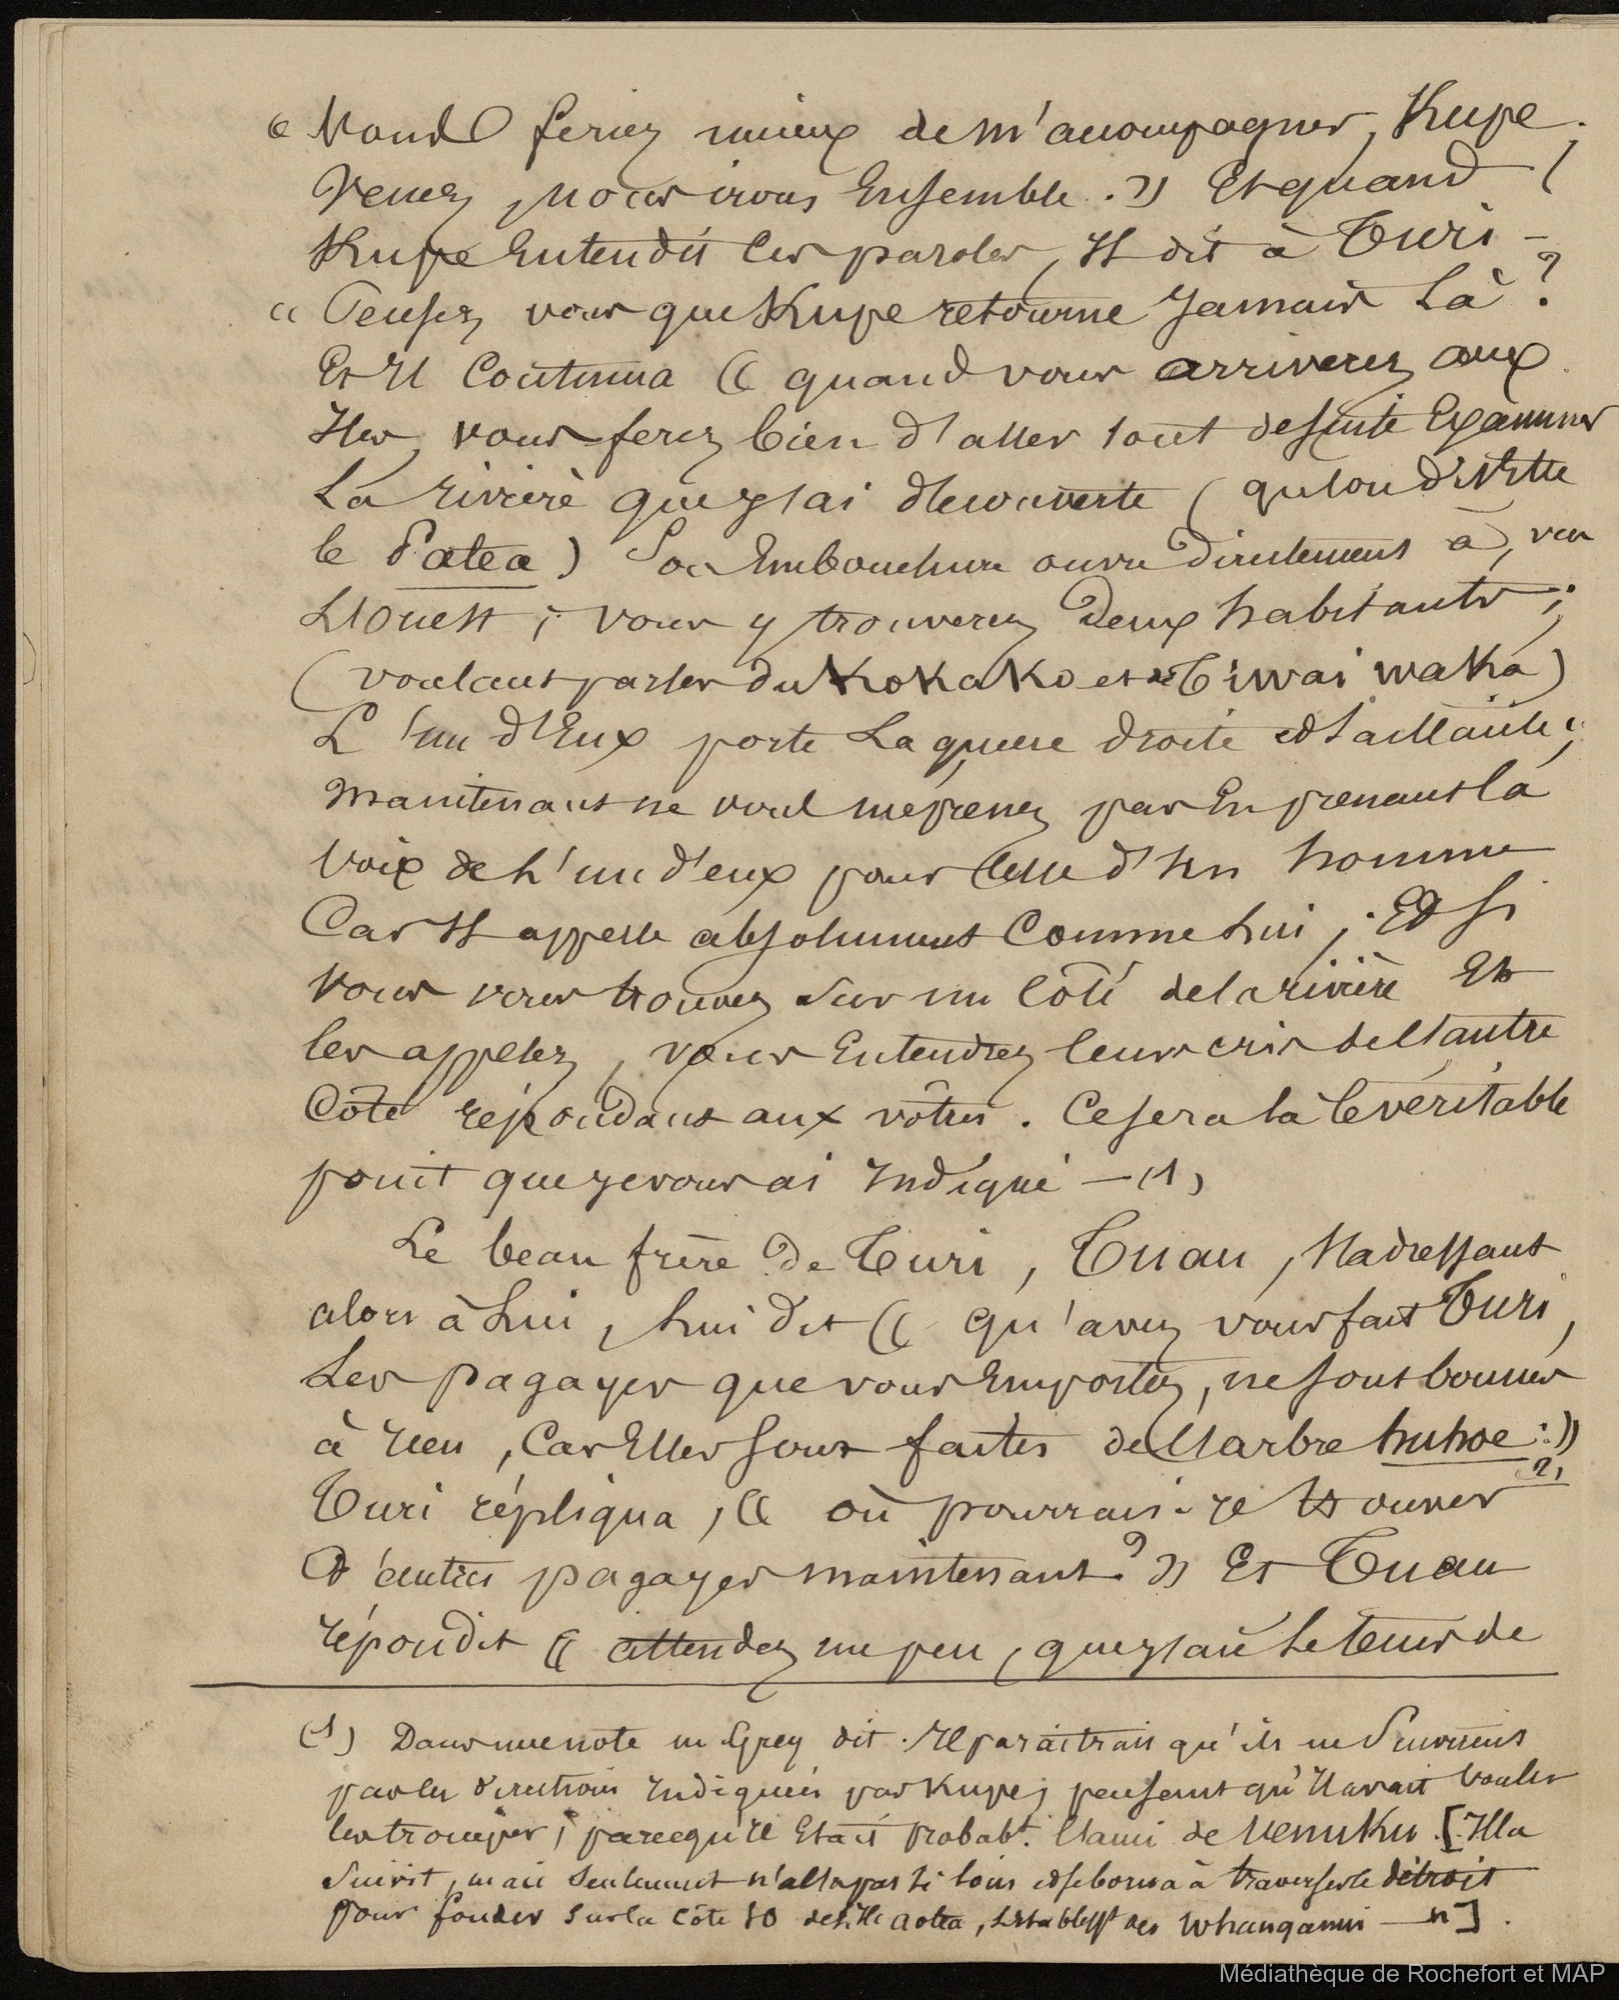 « Vous feriez mieux de m'accompagner, Kupe.
Venez, nous irons Ensemble. » Et quand
Kupe Entendit ces paroles, Il dit à Turi –
« Pensez vous que Kupe retourne Jamais là ?
Et Il Continua « quand vous arriverez aux
Iles, vous ferez bien d'aller tout de suite Examiner
La rivière que j'ai découverte ( qu'on dit être
le Patea ) Son Embouchure ouvre directement à, vers
L'ouest ; vous y trouverez Deux habitants ;
( voulant parler du KoKaKo et Tiwai waka )
L'un d'Eux porte La queue droite et saillante ;
Maintenant ne vous méprenez pas En prenant la
voix de L'un d'eux pour Celle d'Un homme
Car Il appelle absolument Comme Lui ; Et si
vous vous trouvez Sur un Côté de la rivière Et
les appelez, vous Entendrez leurs cris de l'autre
Côté répondant aux vôtres. Ce sera là le véritable
point que je vous ai Indiqué – (1)
Le beau frère de Turi, Tuau, s'adressant
alors à Lui, Lui dit « qu'avez vous fait Turi,
Les pagayes que vous Emportez, ne sont bonnes
à rien, Car Elles sont faites de l'arbre huhoe : »
(2)
Turi répliqua, « où pourrais-je trouver
D'autres pagayes maintenant ? » Et Tuau
répondit « attendez un peu, que j'aie le tems de
(1) Dans une note m Grey dit. Il paraitrait qu'ils ne suivirent
pas les directions Indiquées par Kupe ; pensant qu'Il avait voulu
les tromper ; parcequ'Il Etait probabt. l'ami de UenuKu. [ Il la
suivit, mais seulement n'alla pas si loin et se borna à traverser le détroit
pour fonder sur la Côte SO de l'Ile Aotea, l'établisst des Whanganui — n ].
Médiathèque de Rochefort et MAP